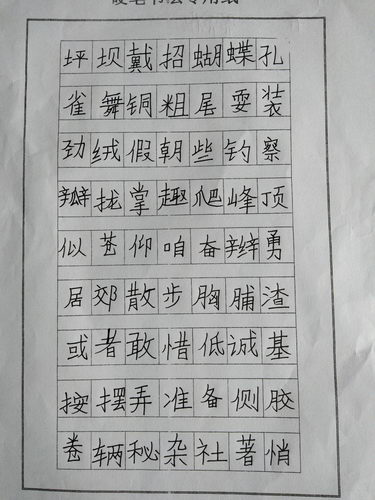 硬笔书法专用纸
坪坝戴招蝴蝶孔
雀舞铜粗尾耍装
劲绒假朝些钓察
瓣拢掌趣爬峰顶
似苍仰咱奋辫勇
居郊散步胸脯渣
或者敢惜低诚基
按摆弄准备侧胶
卷辆秘杂社著悄